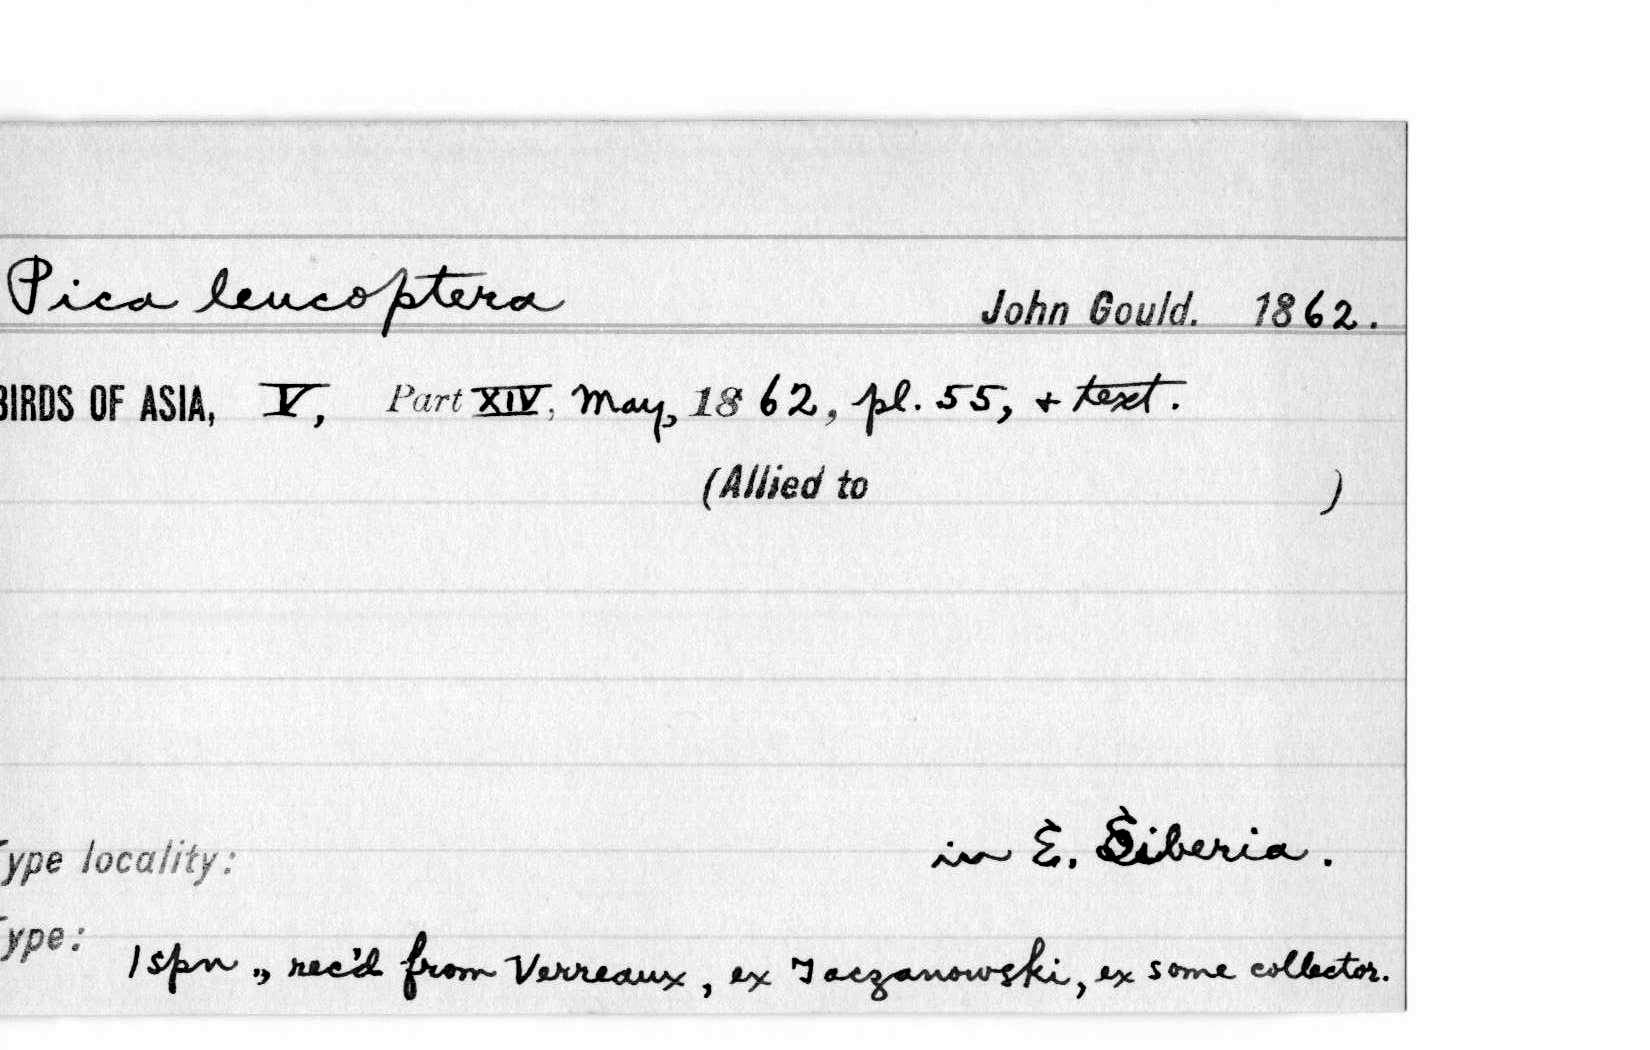 Pica leucoptera John Gould. 1862.
BIRDS OF ASIA, V, Part XIV, May, 1862, pl. 55, + text.
(Allied to )
Type locality: in E. Siberia.
Type: 1 spn., rec'd from Verreaux, ex Taczanowski, ex some collector.